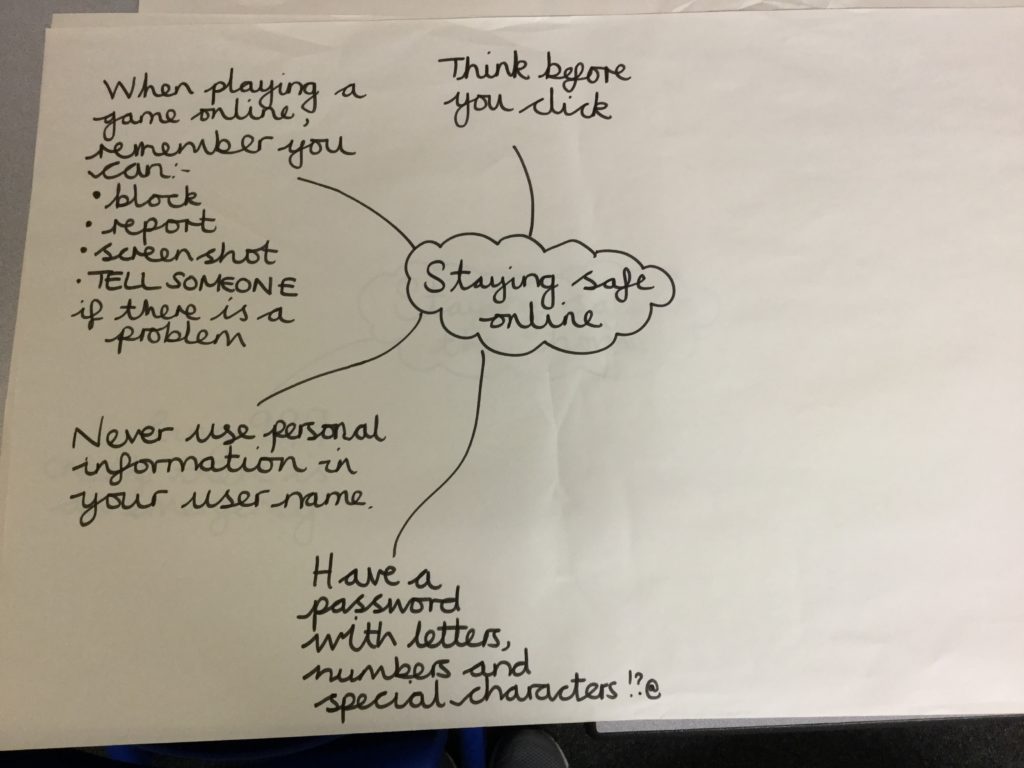 Staying safe
online
When playing a
game online,
remember you
can:-
• block
• report
• screenshot
• TELL SOMEONE
if there is a
problem
Think before
you click
Never use personal
information in
your user name.
Have a
password
with letters,
numbers and
special characters !?@